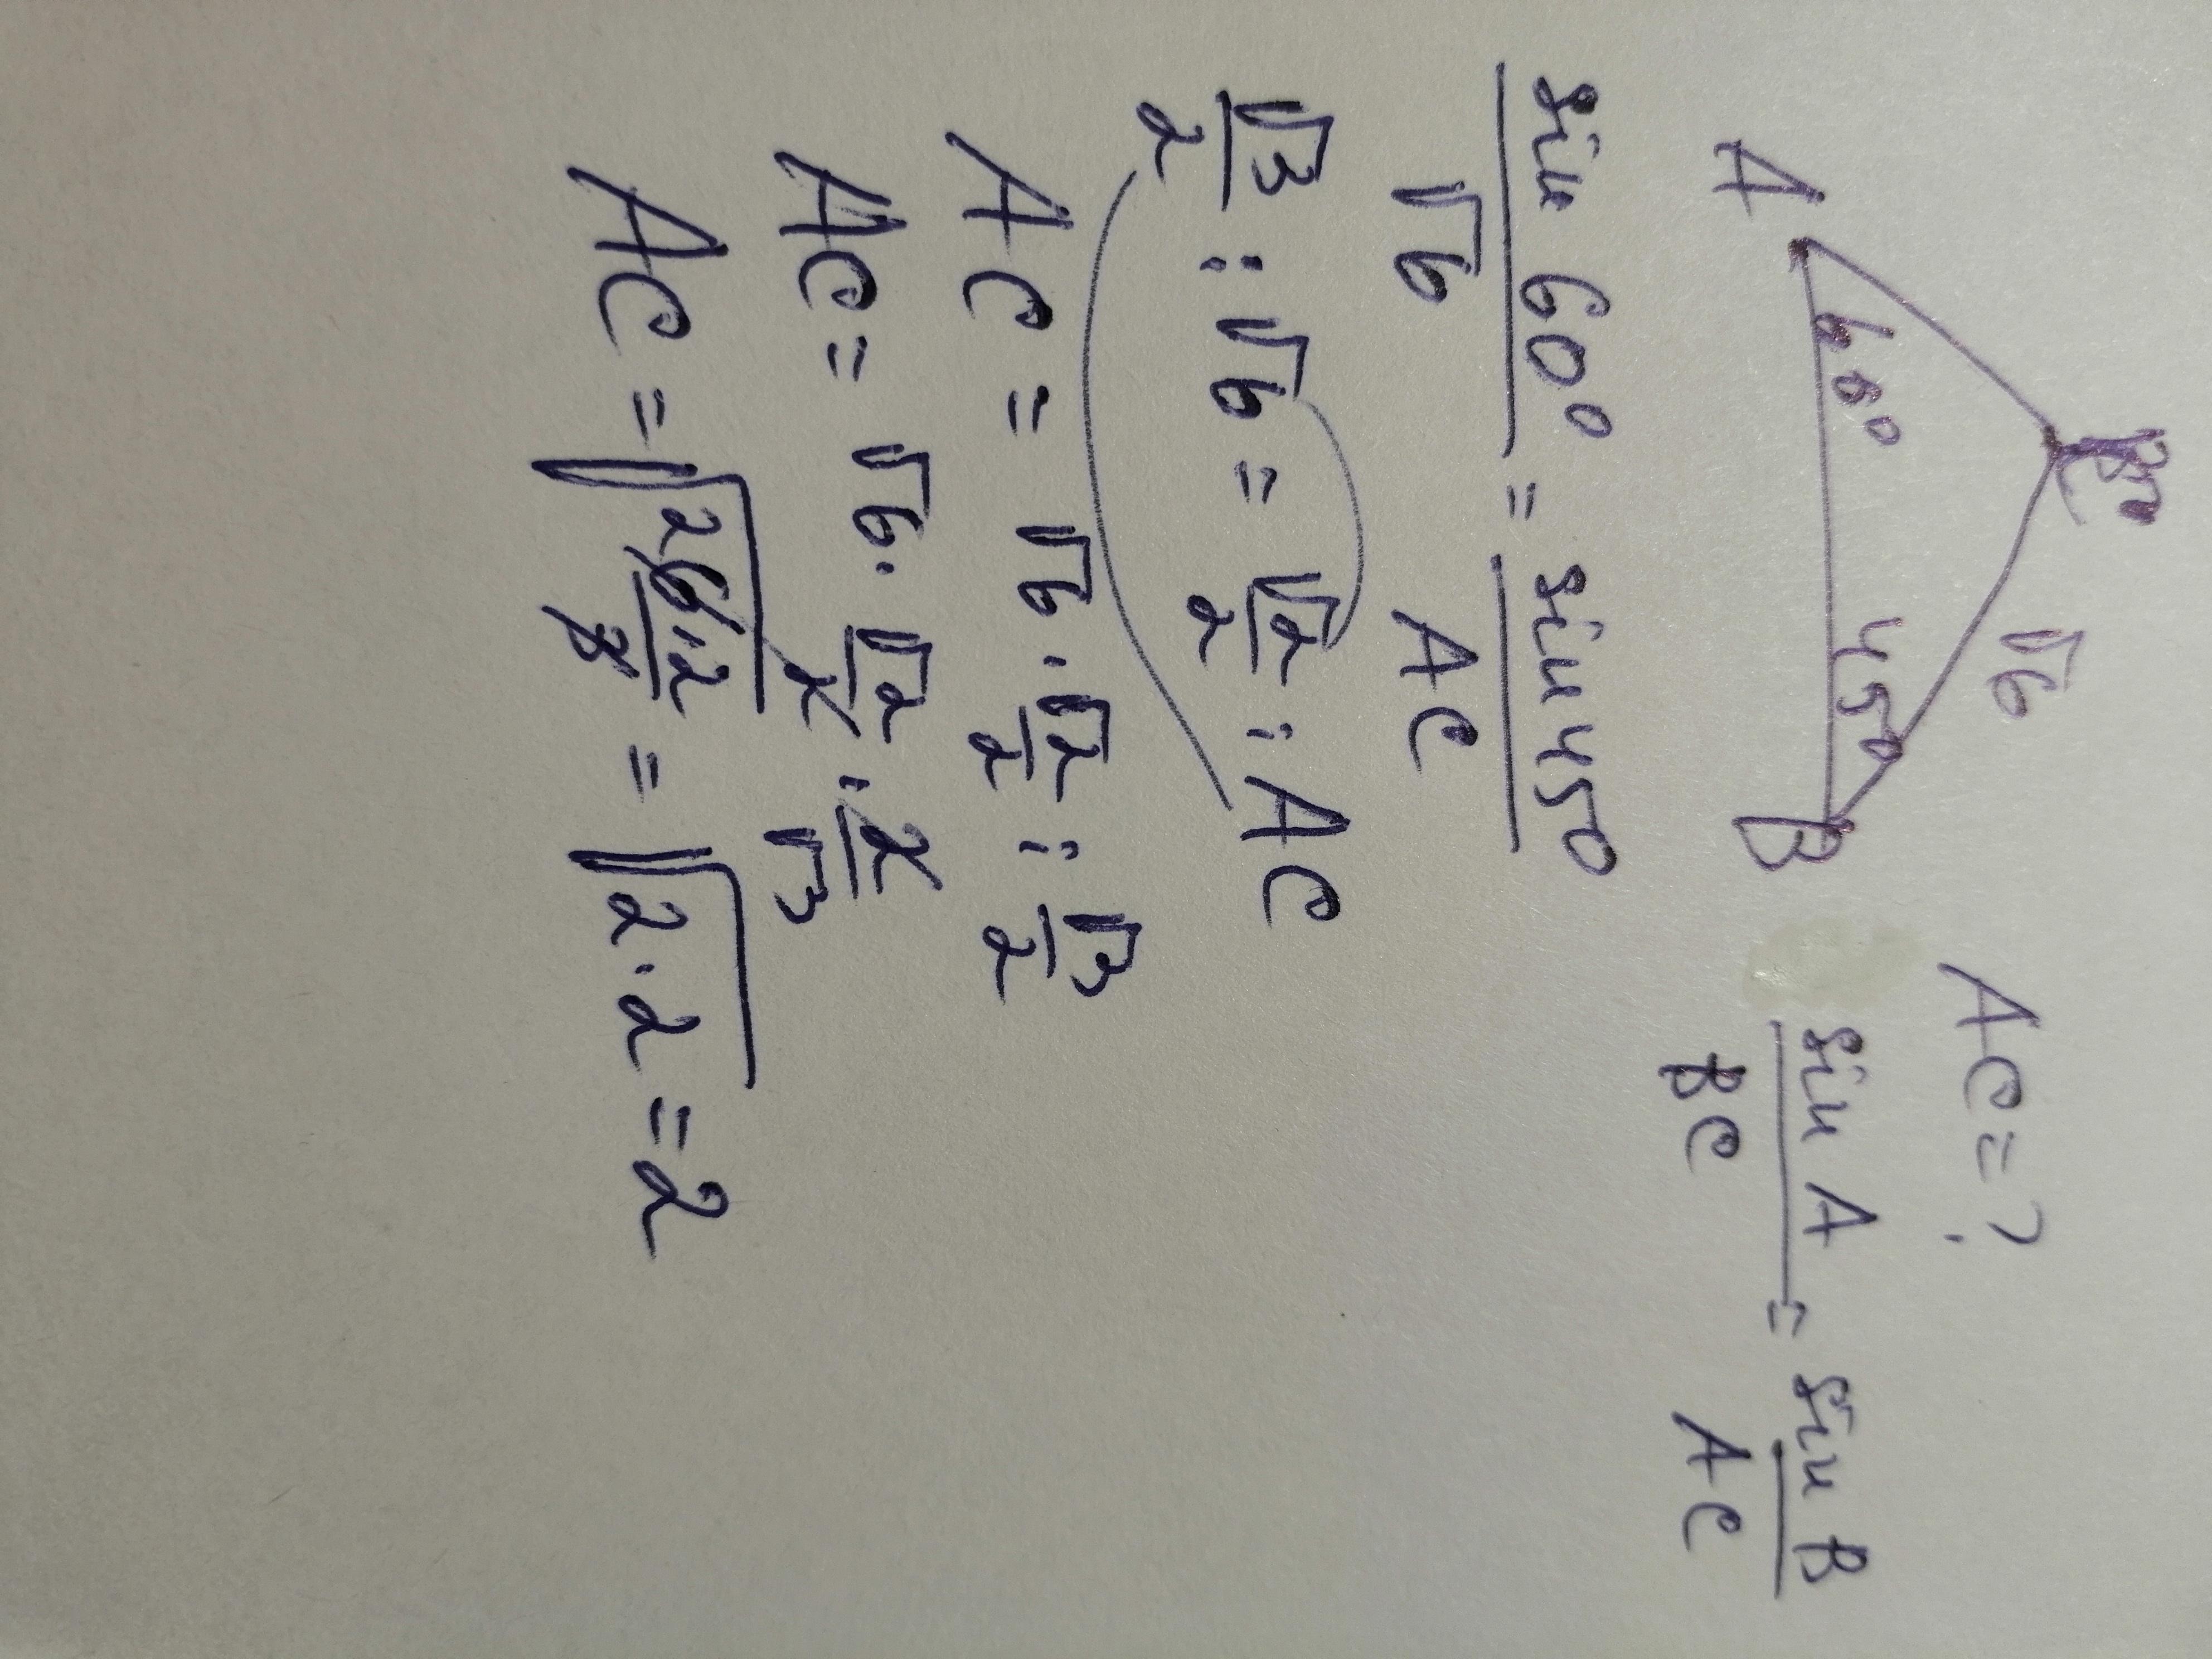 C
√6
AC = ?
A 60° 45° B
sin A / BC = sin B / AC
sin 60° / √6 = sin 45° / AC
√3/2 : √6 = √2/2 : AC
AC = √6 · √2/2 : √3/2
AC = √6 · √2/2 · 2/√3
AC = √(6·2/3) = √(2·2) = 2